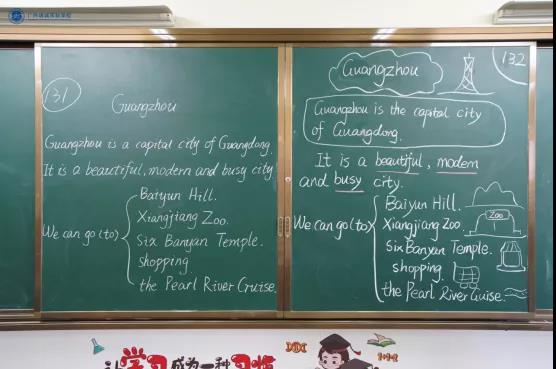 131
Guangzhou
Guangzhou is a capital city of Guangdong.
It is a beautiful, modern and busy city
We can go (to)
Baiyun Hill.
Xiangjiang Zoo.
Six Banyan Temple.
shopping
the Pearl River Cruise.
132
Guangzhou
Guangzhou is the capital city
of Guangdong.
It is a beautiful, modern
and busy city.
We can go (to)
Baiyun Hill.
Xiangjiang Zoo.
Zoo
Six Banyan Temple.
shopping.
the Pearl River Cruise.
让学习成为一种习惯